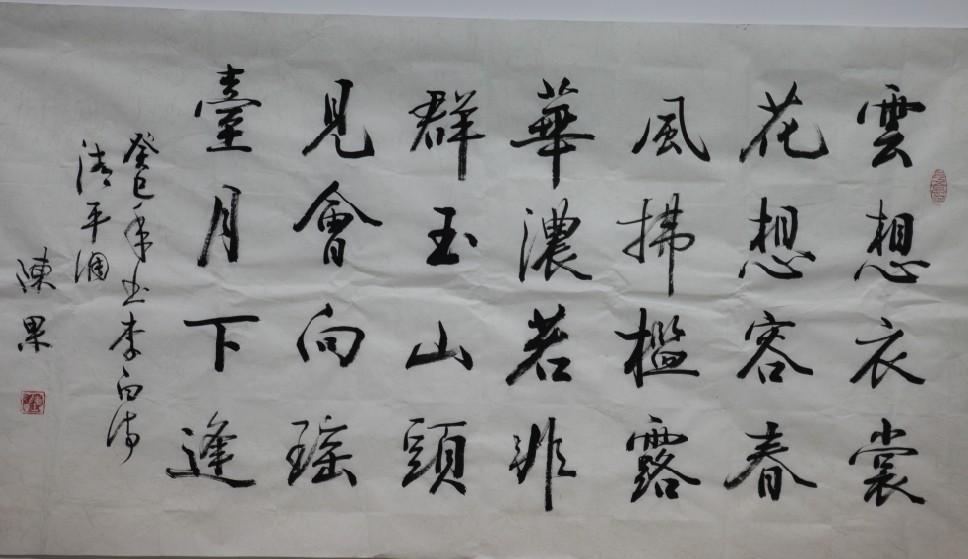 雲想衣裳
花想容春
風拂檻露
華濃若非
群玉山頭
見會向瑤
臺月下逢
癸巳年書李白詩
清平調
陳果